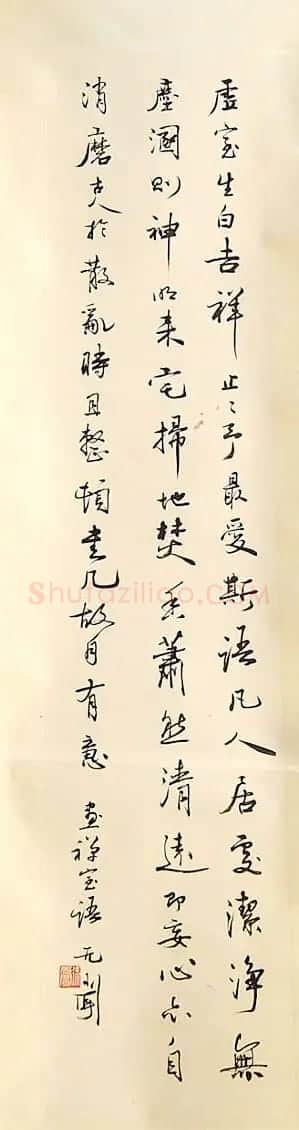 虛室生白吉祥止〻予最愛斯語凡人居處潔淨無
塵溷則神明来宅掃地焚香蕭然清遠即妄心亦自
消磨古人於散亂時且整頓書几故自有意 畫禅室語 无聞
Shufaziliao.COM